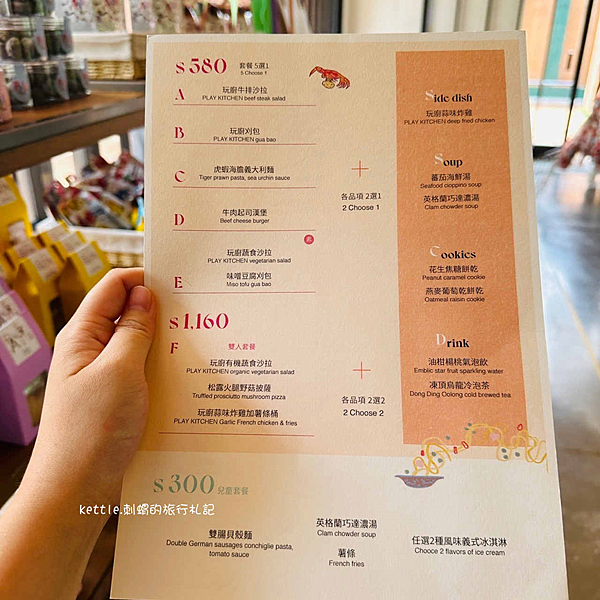 $580 套餐 5選1
5 Choose 1
A
玩廚牛排沙拉
PLAY KITCHEN beef steak salad
B
玩廚刈包
PLAY KITCHEN gua bao
C
虎蝦海膽義大利麵
Tiger prawn pasta, sea urchin sauce
D
牛肉起司漢堡
Beef cheese burger
玩廚蔬食沙拉
PLAY KITCHEN vegetarian salad
E
味噌豆腐刈包
Miso tofu gua bao
+
各品項 2選1
2 Choose 1
$1,160
F
雙人套餐
玩廚有機蔬食沙拉
PLAY KITCHEN organic vegetarian salad
松露火腿野菇披薩
Truffled prosciutto mushroom pizza
玩廚蒜味炸雞加薯條桶
PLAY KITCHEN Garlic French chicken & fries
+
各品項 2選2
2 Choose 2
Side dish
玩廚蒜味炸雞
PLAY KITCHEN deep fried chicken
Soup
蕃茄海鮮湯
Seafood cioppino soup
英格蘭巧達濃湯
Clam chowder soup
Cookies
花生焦糖餅乾
Peanut caramel cookie
燕麥葡萄乾餅乾
Oatmeal raisin cookie
Drink
油柑楊桃氣泡飲
Emblic star fruit sparkling water
凍頂烏龍冷泡茶
Dong Ding Oolong cold brewed tea
$300 兒童套餐
雙腸貝殼麵
Double German sausages conchiglie pasta,
tomato sauce
英格蘭巧達濃湯
Clam chowder soup
薯條
French fries
任選2種風味義式冰淇淋
Chooce 2 flavors of ice cream
kettle.刺蝟的旅行札記